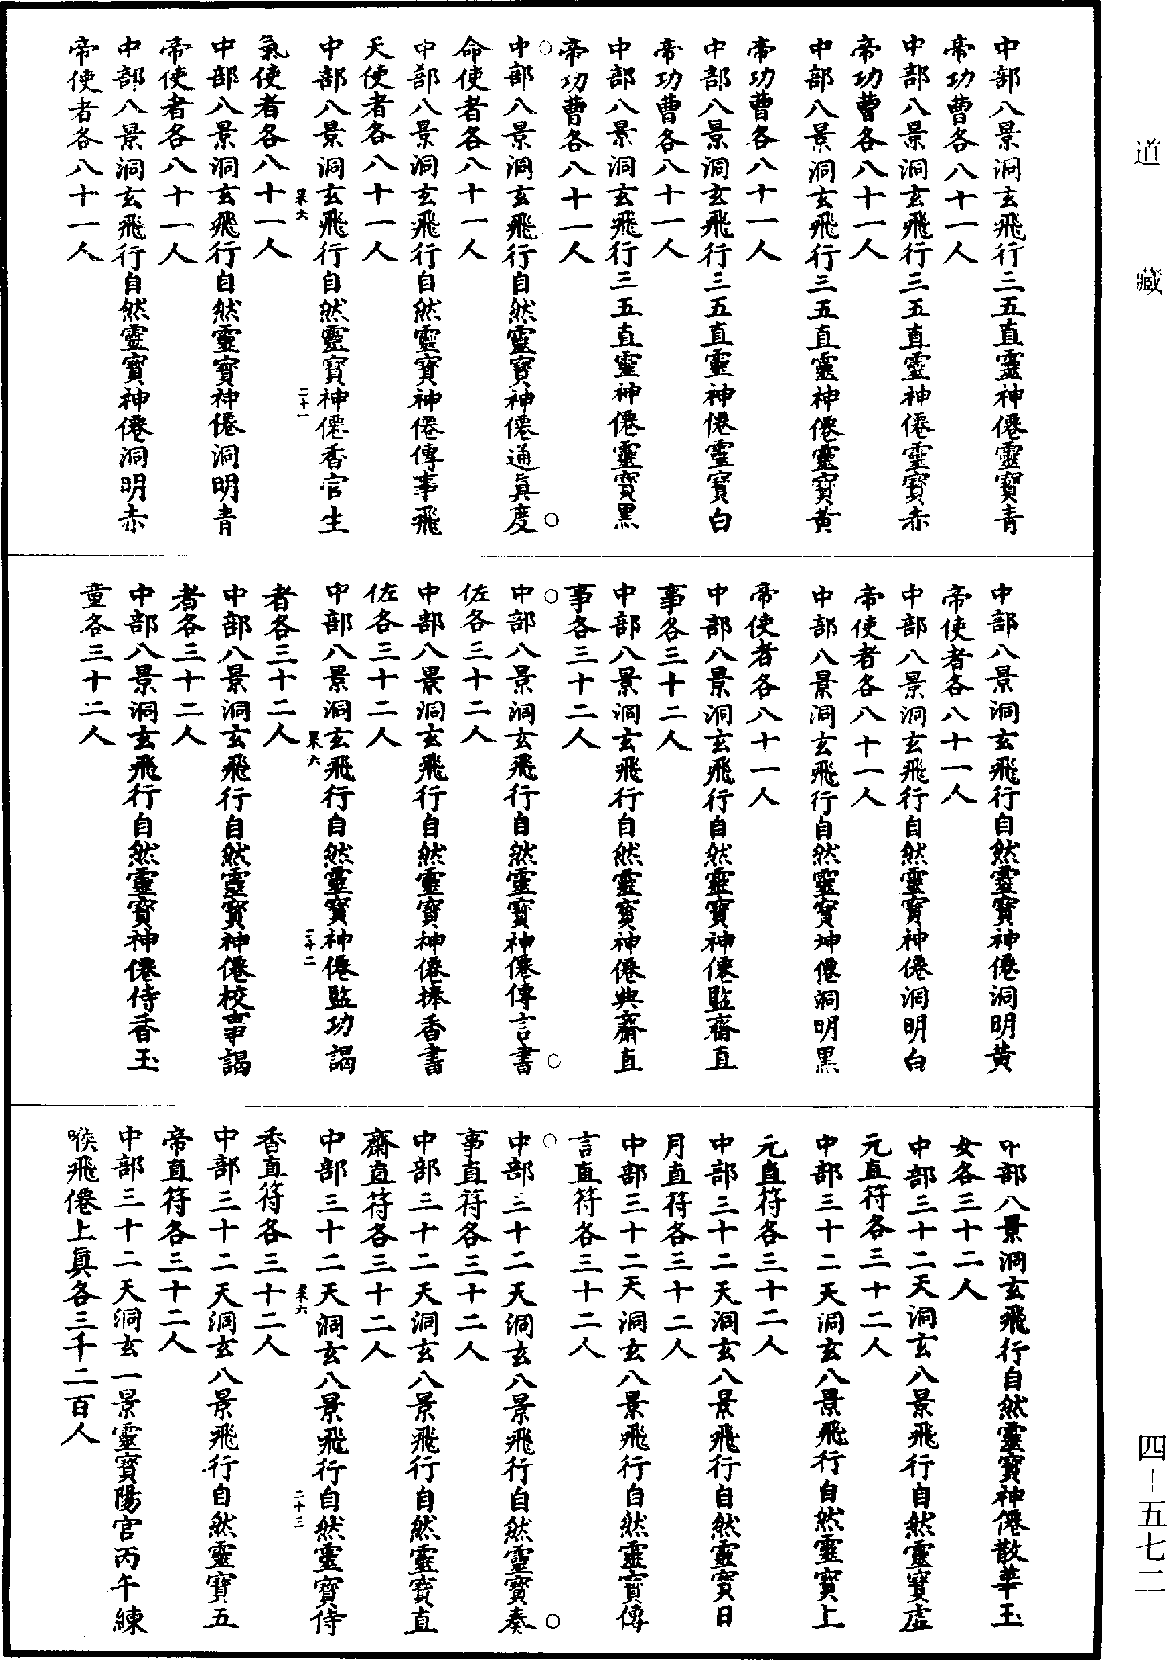 道藏
中部八景洞玄飛行三五直靈神僊靈寶青
帝功曹各八十一人
中部八景洞玄飛行三五直靈神僊靈寶赤
帝功曹各八十一人
中部八景洞玄飛行三五直靈神僊靈寶黃
帝功曹各八十一人
中部八景洞玄飛行三五直靈神僊靈寶白
帝功曹各八十一人
中部八景洞玄飛行三五直靈神僊靈寶黑
帝功曹各八十一人
○中部八景洞玄飛行自然靈寶神僊通真度○
命使者各八十一人
中部八景洞玄飛行自然靈寶神僊傳事飛
天使者各八十一人
中部八景洞玄飛行自然靈寶神僊香官生
菜六 二十一
氣使者各八十一人
中部八景洞玄飛行自然靈寶神僊洞明青
帝使者各八十一人
中部八景洞玄飛行自然靈寶神僊洞明赤
帝使者各八十一人
中部八景洞玄飛行自然靈寶神僊洞明黃
帝使者各八十一人
中部八景洞玄飛行自然靈寶神僊洞明白
帝使者各八十一人
中部八景洞玄飛行自然靈寶神僊洞明黑
帝使者各八十一人
中部八景洞玄飛行自然靈寶神僊監齋直
事各三十二人
中部八景洞玄飛行自然靈寶神僊典齋直
事各三十二人
○中部八景洞玄飛行自然靈寶神僊傳言書○
佐各三十二人
中部八景洞玄飛行自然靈寶神僊捧香書
佐各三十二人
中部八景洞玄飛行自然靈寶神僊監功謁
菜六 二十二
者各三十二人
中部八景洞玄飛行自然靈寶神僊校事謁
者各三十二人
中部八景洞玄飛行自然靈寶神僊侍香玉
童各三十二人
中部八景洞玄飛行自然靈寶神僊散華玉
女各三十二人
中部三十二天洞玄八景飛行自然靈寶虛
元直符各三十二人
中部三十二天洞玄八景飛行自然靈寶上
元直符各三十二人
中部三十二天洞玄八景飛行自然靈寶日
月直符各三十二人
中部三十二天洞玄八景飛行自然靈寶傳
言直符各三十二人
○中部三十二天洞玄八景飛行自然靈寶奏○
事直符各三十二人
中部三十二天洞玄八景飛行自然靈寶直
齋直符各三十二人
中部三十二天洞玄八景飛行自然靈寶侍
菜六 二十三
香直符各三十二人
中部三十二天洞玄八景飛行自然靈寶五
帝直符各三十二人
中部三十二天洞玄一景靈寶陽宮丙午練
喉飛僊上真各三千二百人
四－五七二